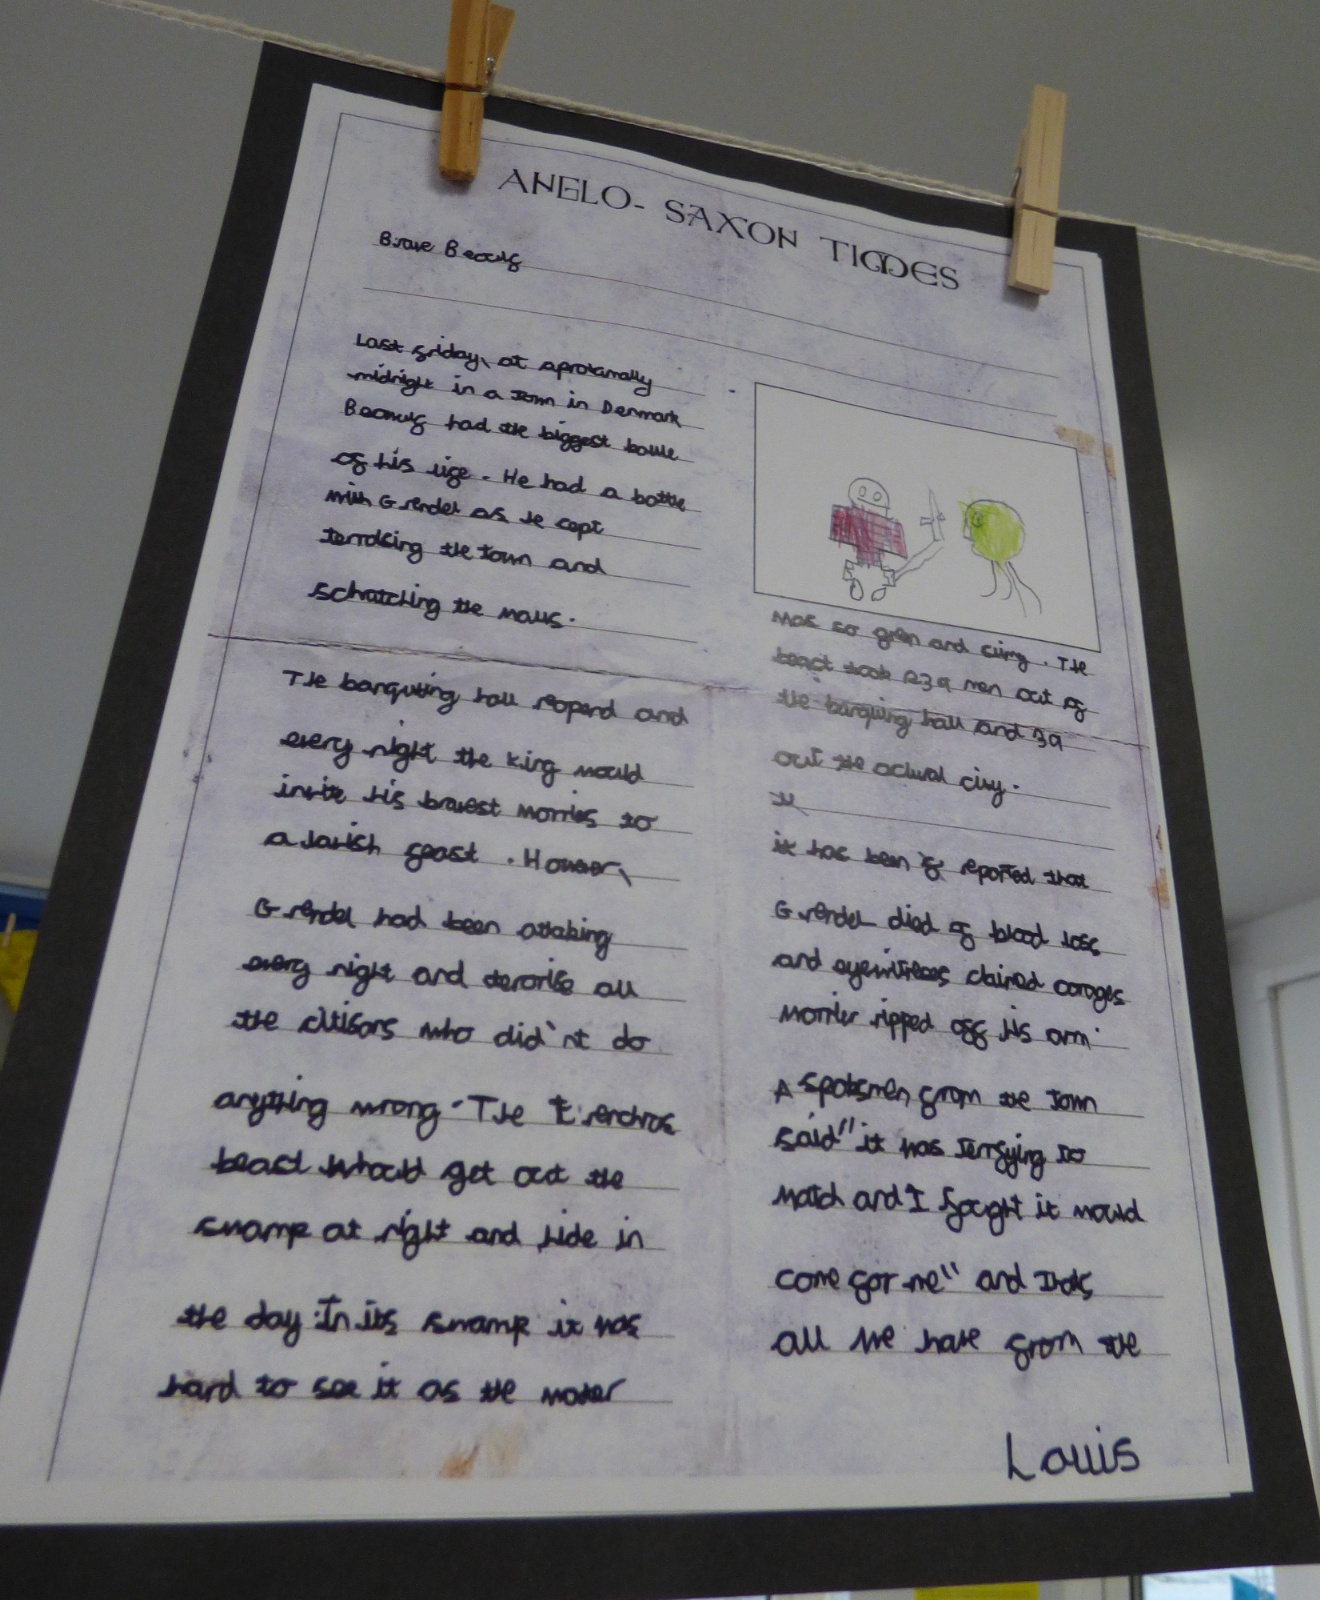 ANGLO-SAXON TIMES
Brave Beowulf
Last friday, at aproxamally
midnight in a town in Denmark
Beowulf had the biggest battle
of his life. He had a battle
with Grendel as he cept
terrorising the town and
schratching the walls.
The banquting hall reopend and
every night the king would
invite his bravest worries to
a lavish feast. However,
Grendel had been attaking
every night and terorise all
the citisons who did'nt do
anything wrong. The
beast whould get out the
swamp at night and hide in
the day. In its swamp it was
hard to see it as the water
was so green and slimy. The
beast took 239 men out of
the banquing hall and 39
out the actual city.
it has been reported that
Grendel died of blood loss
and eyewitness claimed
worrier ripped off his arm.
A spoksmen from the town
said" it was terrfying to
watch and I fought it would
come for me" and thats
all we have from the
Louis